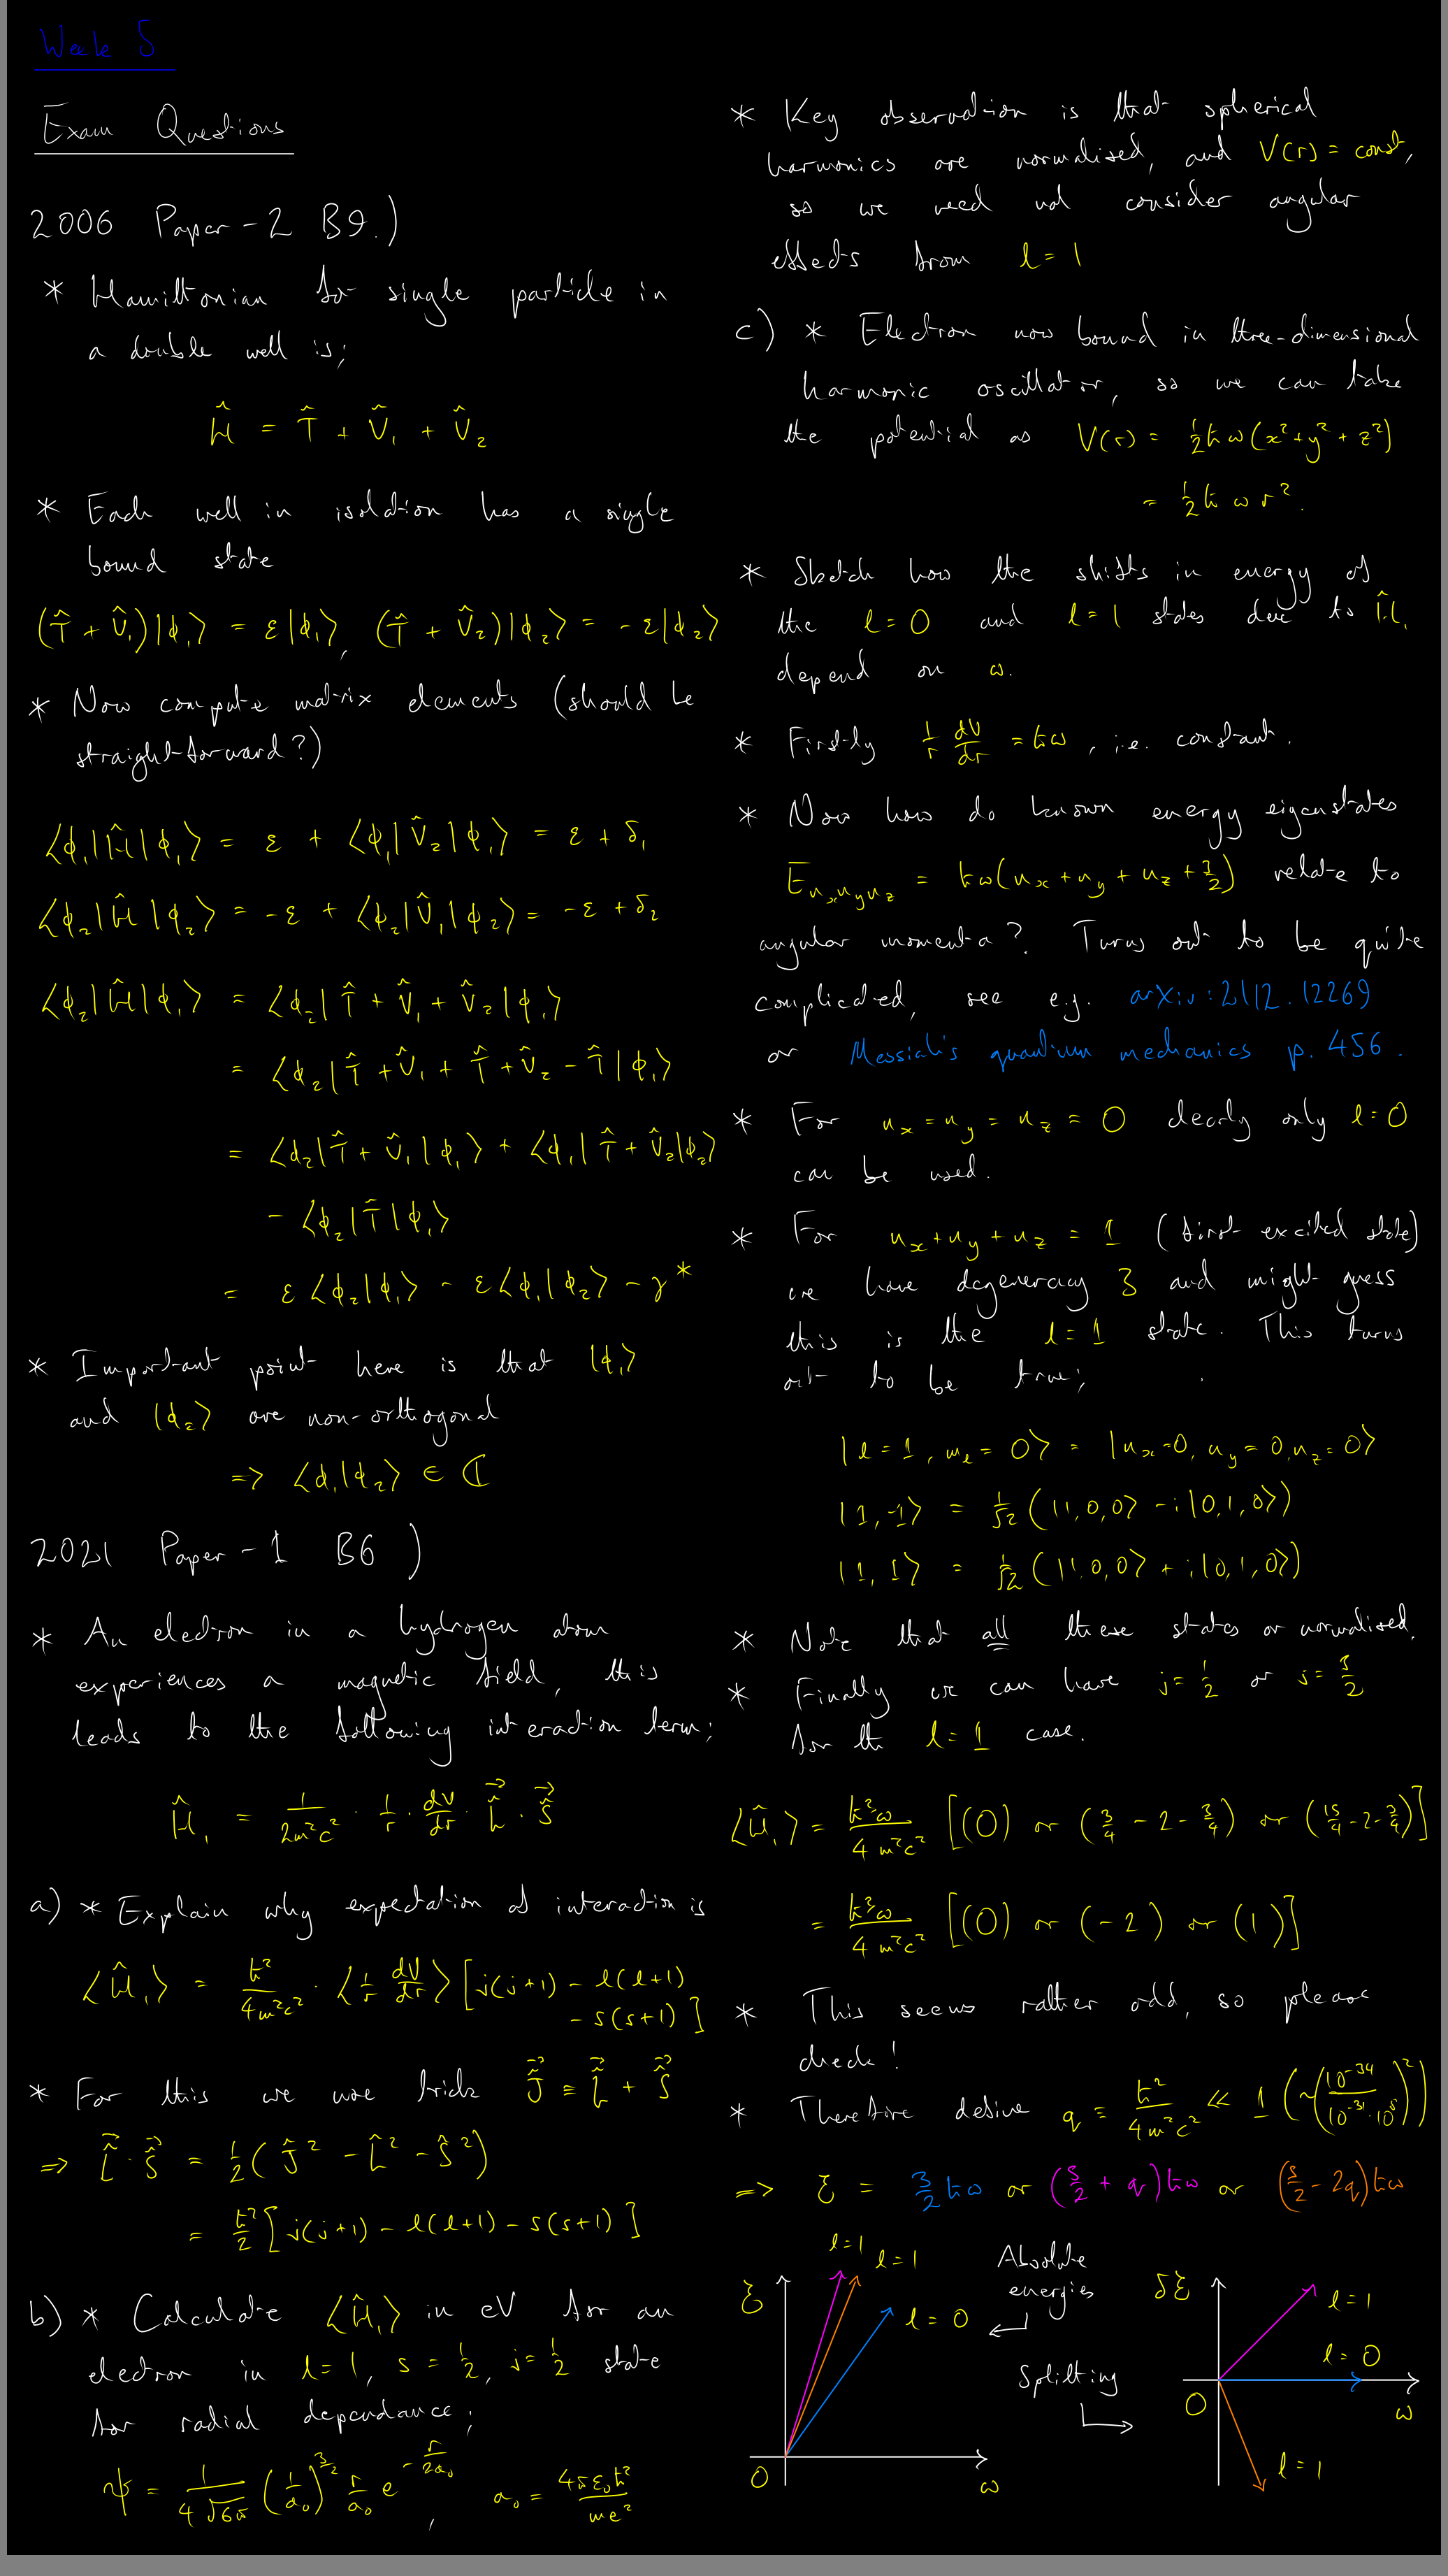 Week 5
Exam Questions
2006 Paper-2 B9.)
* Hamiltonian for single particle in
a double well is;
Ĥ = T̂ + V̂₁ + V̂₂
* Each well in isolation has a single
bound state
(T̂ + V̂₁)|ϕ₁⟩ = ε|ϕ₁⟩, (T̂ + V̂₂)|ϕ₂⟩ = -ε|ϕ₂⟩
* Now compute matrix elements (should be
straight-forward?)
⟨ϕ₁|Ĥ|ϕ₁⟩ = ε + ⟨ϕ₁|V̂₂|ϕ₁⟩ = ε + δ₁
⟨ϕ₂|Ĥ|ϕ₂⟩ = -ε + ⟨ϕ₂|V̂₁|ϕ₂⟩ = -ε + δ₂
⟨ϕ₂|Ĥ|ϕ₁⟩ = ⟨ϕ₂|T̂ + V̂₁ + V̂₂|ϕ₁⟩
= ⟨ϕ₂|T̂ + V̂₁ + T̂ + V̂₂ - T̂|ϕ₁⟩
= ⟨ϕ₂|T̂ + V̂₁|ϕ₁⟩ + ⟨ϕ₁|T̂ + V̂₂|ϕ₂⟩
- ⟨ϕ₂|T̂|ϕ₁⟩
= ε⟨ϕ₂|ϕ₁⟩ - ε⟨ϕ₁|ϕ₂⟩ - γ*
* Important point here is that |ϕ₁⟩
and |ϕ₂⟩ are non-orthogonal
=> ⟨ϕ₁|ϕ₂⟩ ∈ ℂ
2021 Paper-1 B6)
* An electron in a hydrogen atom
experiences a magnetic field, this
leads to the following interaction term;
Ĥ₁ = 1/2m²c² · 1/r · dV/dr · L̂⃗ · Ŝ⃗
a) * Explain why expectation of interaction is
⟨Ĥ₁⟩ = ħ²/4m²c² · ⟨1/r dV/dr⟩ [j(j+1) - l(l+1)
- s(s+1)]
* For this we use trick Ĵ⃗ ≡ L̂⃗ + Ŝ⃗
=> L̂⃗ · Ŝ⃗ = 1/2(Ĵ² - L̂² - Ŝ²)
= ħ²/2 [j(j+1) - l(l+1) - s(s+1)]
b) * Calculate ⟨Ĥ₁⟩ in eV for an
electron in l=1, s=1/2, j=1/2 state
for radial dependance;
ψ = 1/4√6π (1/a₀)^3/2 r/a₀ e^-r/2a₀, a₀ = 4πε₀ħ²/me²
* Key observation is that spherical
harmonics are normalised, and V(r) = const,
so we need not consider angular
effects from l=1
c) * Electron now bound in three-dimensional
harmonic oscillator, so we can take
the potential as V(r) = 1/2ħω(x²+y²+z²)
= 1/2ħωr².
* Sketch how the shifts in energy of
the l=0 and l=1 states due to Ĥ₁
depend on ω.
* Firstly 1/r dV/dr = ħω, i.e. constant.
* Now how do known energy eigenstates
E_nₓn_yn_z = ħω(nₓ + n_y + n_z + 3/2) relate to
angular momenta? Turns out to be quite
complicated, see e.g. arXiv:2112.12269
or Messiah's quantum mechanics p. 456.
* For nₓ = n_y = n_z = 0 clearly only l=0
can be used.
* For nₓ + n_y + n_z = 1 (first excited state)
we have degeneracy 3 and might guess
this is the l=1 state. This turns
out to be true;
|l=1, m_l=0⟩ = |nₓ=0, n_y=0, n_z=0⟩
|1,-1⟩ = 1/√2 (|1,0,0⟩ - i|0,1,0⟩)
|1,1⟩ = 1/√2 (|1,0,0⟩ + i|0,1,0⟩)
* Note that all these states or normalised.
* Finally we can have j=1/2 or j=3/2
for the l=1 case.
⟨Ĥ₁⟩ = ħ³ω/4m²c² [(0) or (3/4 - 2 - 3/4) or (15/4 - 2 - 3/4)]
= ħ³ω/4m²c² [(0) or (-2) or (1)]
* This seems rather odd, so please
check!
* Therefore define q ≡ ħ²/4m²c² ≪ 1 (~(10⁻³⁴/10⁻³¹·10⁸)²)
=> ξ = 3/2ħω or (5/2 + q)ħω or (5/2 - 2q)ħω
l=1
l=1
ξ
l=0
Absolute
energies
O
ω
Splitting
δξ
l=1
l=0
O
ω
l=1